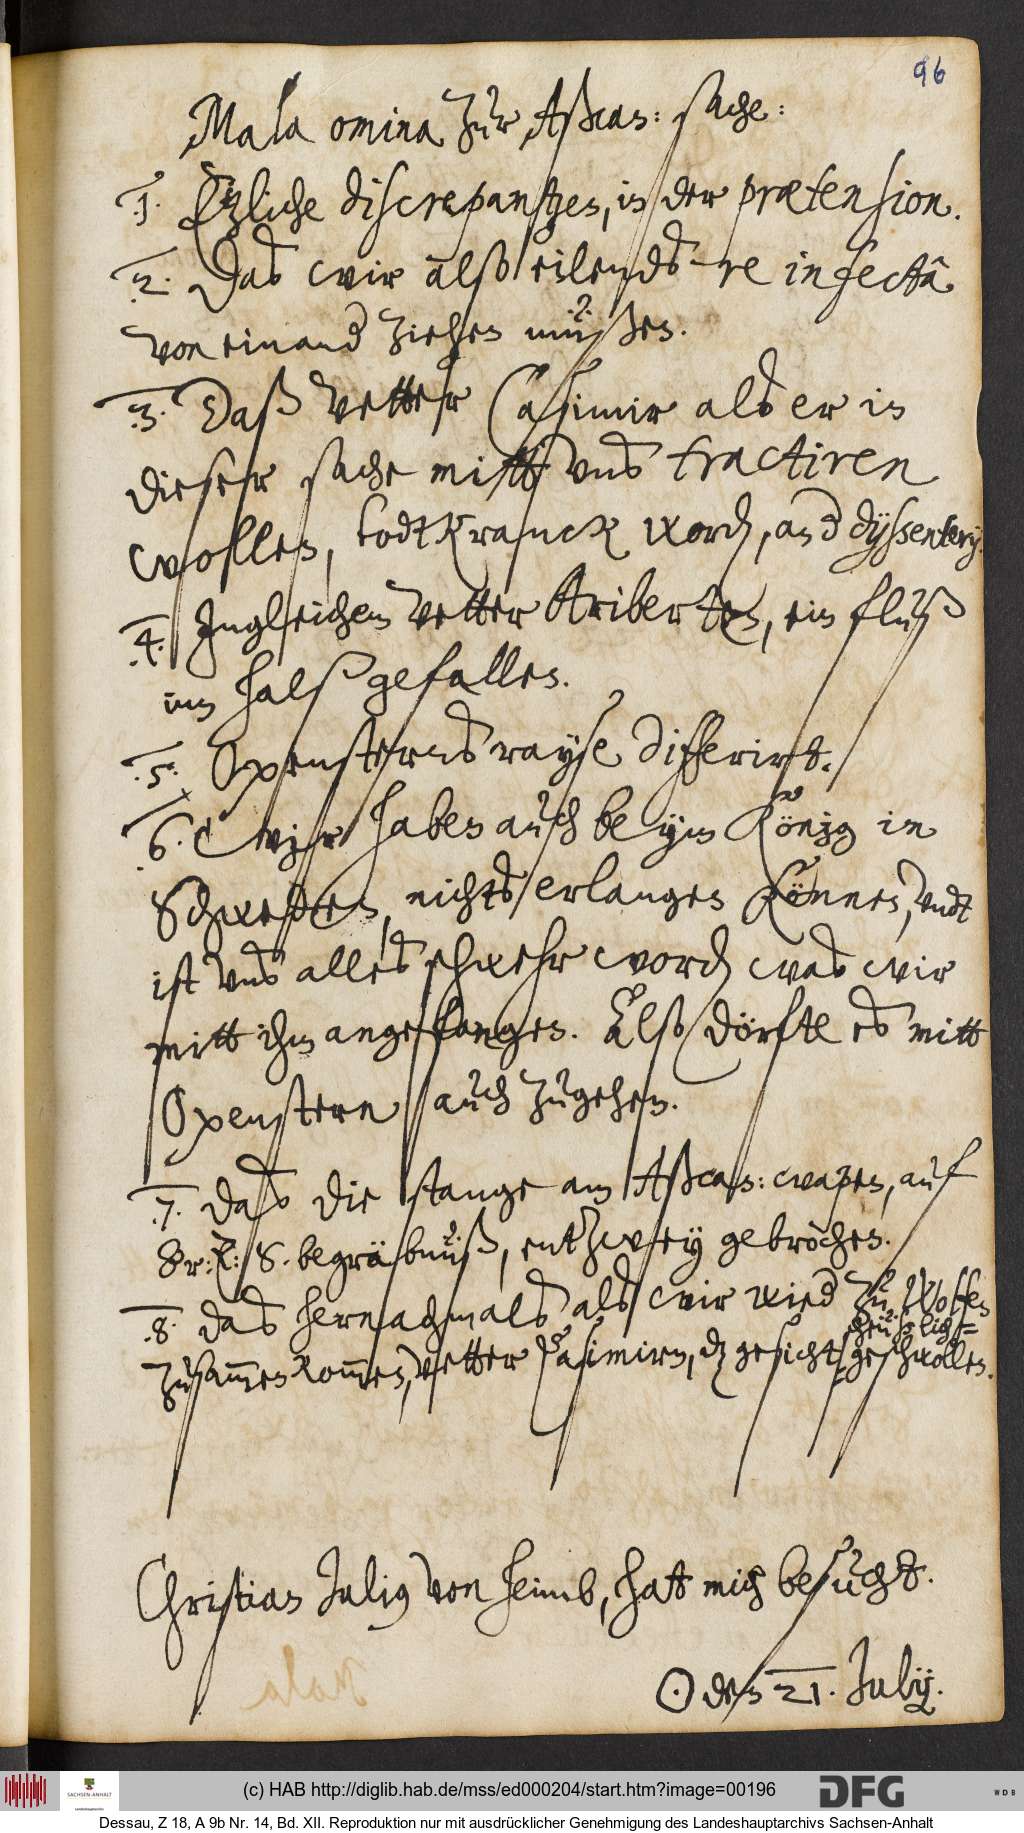 96
Mala omina zur Aßcan: sache:
1. Etzliche discrepantzen, in der prætension.
2. Das wir also eilends re infectâ
von einand ziehen müßen.
3. Daß Vetter Casimir als er in
dieser sache mitt uns tractiren
wollen, todtkranck word, an d dyssentery.
4. Jngleichen Vetter Ariberten, ein fluß
im halß gefallen.
5. Oxensterns rayse differirt.
6. Wir haben auch beym König in
Schweden, nichts erlangen können, undt
ist uns alles schwehr word was wir
mitt ihm angefangen. Also dörfte es mitt
Oxenstern auch zugehen.
7. Das die stange am Aßcan: wapen, auf
Br: L: S. begräbnüß, entzwey gebrochen.
8. das hernachmals als wir wied zu Woffen
zusammen kommen, Vetter Casimirn, dz gesicht scheüßlich= geschwollen.
Christian Julius von Heimb, hatt mich besucht.
☉ den 21. July.
(c) HAB http://diglib.hab.de/mss/ed000204/start.htm?image=00196
SACHSEN-ANHALT
Landeshauptarchiv
DFG
WDB
Dessau, Z 18, A 9b Nr. 14, Bd. XII. Reproduktion nur mit ausdrücklicher Genehmigung des Landeshauptarchivs Sachsen-Anhalt